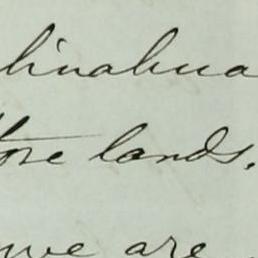 hihuahua
tore lands.
we are